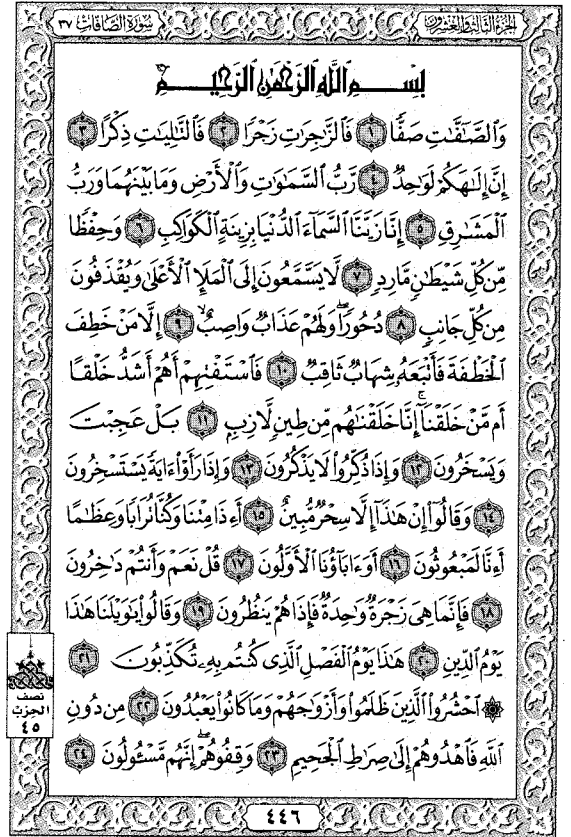 سورة الصافات ٣٧
الجزء الثالث والعشرون
بِسْمِ ٱللَّهِ ٱلرَّحْمَٰنِ ٱلرَّحِيمِ
وَٱلصَّٰٓفَّٰتِ صَفًّا ١ فَٱلزَّٰجِرَٰتِ زَجْرًا ٢ فَٱلتَّٰلِيَٰتِ ذِكْرًا ٣
إِنَّ إِلَٰهَكُمْ لَوَٰحِدٌ ٤ رَّبُّ ٱلسَّمَٰوَٰتِ وَٱلْأَرْضِ وَمَا بَيْنَهُمَا وَرَبُّ
ٱلْمَشَٰرِقِ ٥ إِنَّا زَيَّنَّا ٱلسَّمَآءَ ٱلدُّنْيَا بِزِينَةٍ ٱلْكَوَاكِبِ ٦ وَحِفْظًا
مِّن كُلِّ شَيْطَٰنٍ مَّارِدٍ ٧ لَّا يَسَّمَّعُونَ إِلَى ٱلْمَلَإِ ٱلْأَعْلَىٰ وَيُقْذَفُونَ
مِن كُلِّ جَانِبٍ ٨ دُحُورًا ۖ وَلَهُمْ عَذَابٌ وَاصِبٌ ٩ إِلَّا مَنْ خَطِفَ
ٱلْخَطْفَةَ فَأَتْبَعَهُۥ شِهَابٌ ثَاقِبٌ ١٠ فَٱسْتَفْتِهِمْ أَهُمْ أَشَدُّ خَلْقًا
أَم مَّنْ خَلَقْنَآ ۚ إِنَّا خَلَقْنَٰهُم مِّن طِينٍ لَّازِبٍ ١١ بَلْ عَجِبْتَ
وَيَسْخَرُونَ ١٢ وَإِذَا ذُكِّرُوا۟ لَا يَذْكُرُونَ ١٣ وَإِذَا رَأَوْا۟ ءَايَةً يَسْتَسْخِرُونَ
١٤ وَقَالُوٓا۟ إِنْ هَٰذَآ إِلَّا سِحْرٌ مُّبِينٌ ١٥ أَءِذَا مِتْنَا وَكُنَّا تُرَابًا وَعِظَٰمًا
أَءِنَّا لَمَبْعُوثُونَ ١٦ أَوَءَابَآؤُنَا ٱلْأَوَّلُونَ ١٧ قُلْ نَعَمْ وَأَنتُمْ دَٰخِرُونَ
١٨ فَإِنَّمَا هِىَ زَجْرَةٌ وَٰحِدَةٌ فَإِذَا هُمْ يَنظُرُونَ ١٩ وَقَالُوا۟ يَٰوَيْلَنَا هَٰذَا
يَوْمُ ٱلدِّينِ ٢٠ هَٰذَا يَوْمُ ٱلْفَصْلِ ٱلَّذِى كُنتُم بِهِۦ تُكَذِّبُونَ ٢١
۞ ٱحْشُرُوا۟ ٱلَّذِينَ ظَلَمُوا۟ وَأَزْوَٰجَهُمْ وَمَا كَانُوا۟ يَعْبُدُونَ ٢٢ مِن دُونِ
ٱللَّهِ فَٱهْدُوهُمْ إِلَىٰ صِرَٰطِ ٱلْجَحِيمِ ٢٣ وَقِفُوهُمْ ۖ إِنَّهُم مَّسْـُٔولُونَ ٢٤
نصف
الحزب
٤٥
٤٤٦